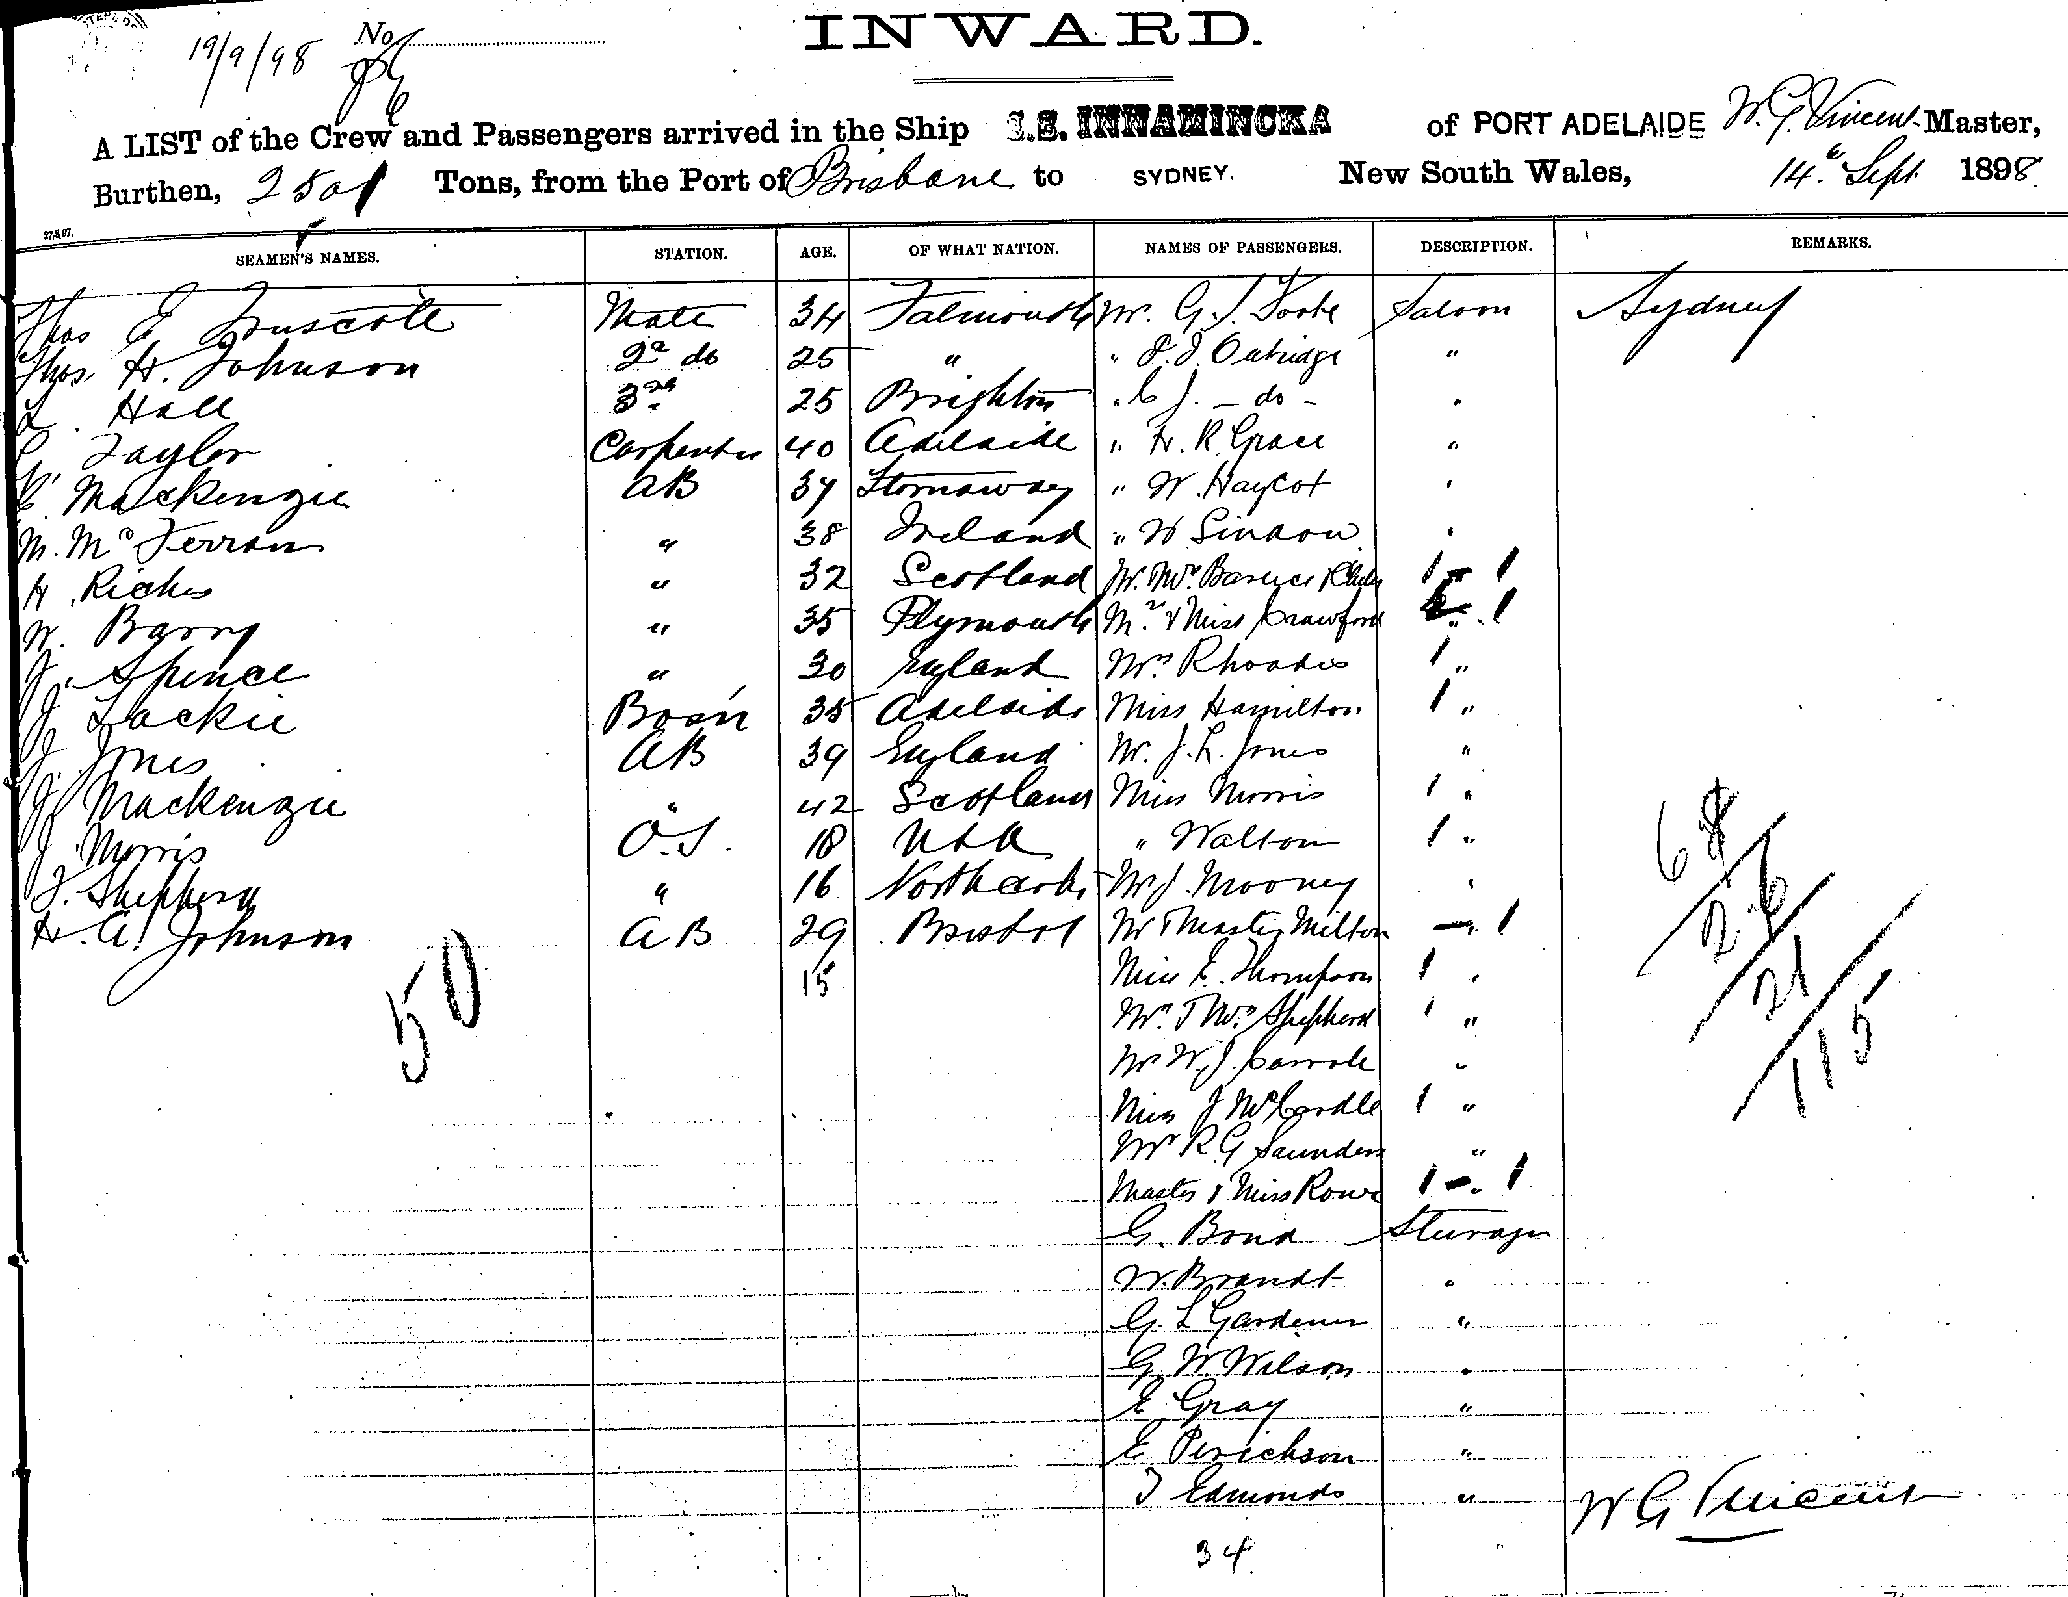 19/9/98 No
INWARD.
A LIST of the Crew and Passengers arrived in the Ship S.S. INNAMINCKA of PORT ADELAIDE W. G. Vincent Master,
Burthen, 2501 Tons, from the Port of Brisbane to SYDNEY. New South Wales, 14th Sept. 1898.
SEAMEN'S NAMES. STATION. AGE. OF WHAT NATION. NAMES OF PASSENGERS. DESCRIPTION. REMARKS.
Thos E Truscott Mate 34 Falmouth Mr. G. S. Saloon Sydney
Thos. H. Johnson 2nd do 25 " " Outridge "
Hall 3rd 25 Brighton " C J. - do - "
Taylor Carpenter 40 Adelaide " H. R. Grace "
Mackenzie AB 37 Stornoway " W. Haycot "
M. McFerran " 38 Ireland " W "
H. Riches " 32 Scotland Mr. Mrs 1 - 1
W. Barry " 35 Plymouth Mr. & Miss Crawford " 1
J. Spence " 30 England Mrs Rhoades 1 "
J. Lackie Bosn 35 Adelaide Miss Hamilton 1 "
J Jones AB 39 England Mr. J. L. Jones "
J. Mackenzie " 42 Scotland Miss Morris 1 "
J. Morris O.S. 18 USA " Walton 1 "
Shepherd " 16 Mr J. Mooney "
H. A. Johnson AB 29 Bristol Mr & Master Milton - 1
15 Miss E. Thompson 1 "
Mr. & Mrs. Shepherd 1 "
Mr W. J. "
Miss J McCardle 1 "
Mr R. G Saunders "
Master & Miss Rowe 1 - 1
G. Bond Steerage
W. Brandt "
G. L Gardiner "
G. W. Wilson "
E Gray "
E "
T Edmonds "
34
50
26
21
115
W G Vincent